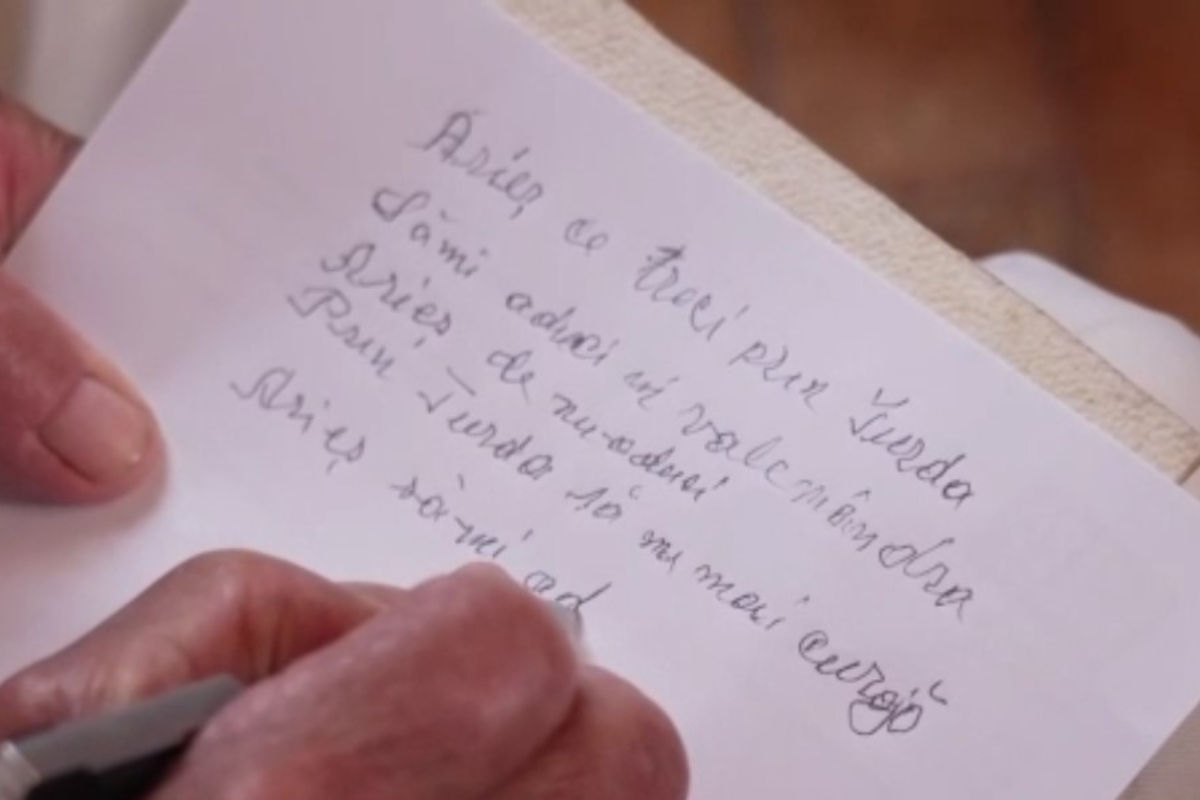 Arieș ce treci prin Turda
Sămi aduci in vale mândra
Arieș de nu-aduci
Prin Turda să nu mai curgi
Arieș să-mi ad